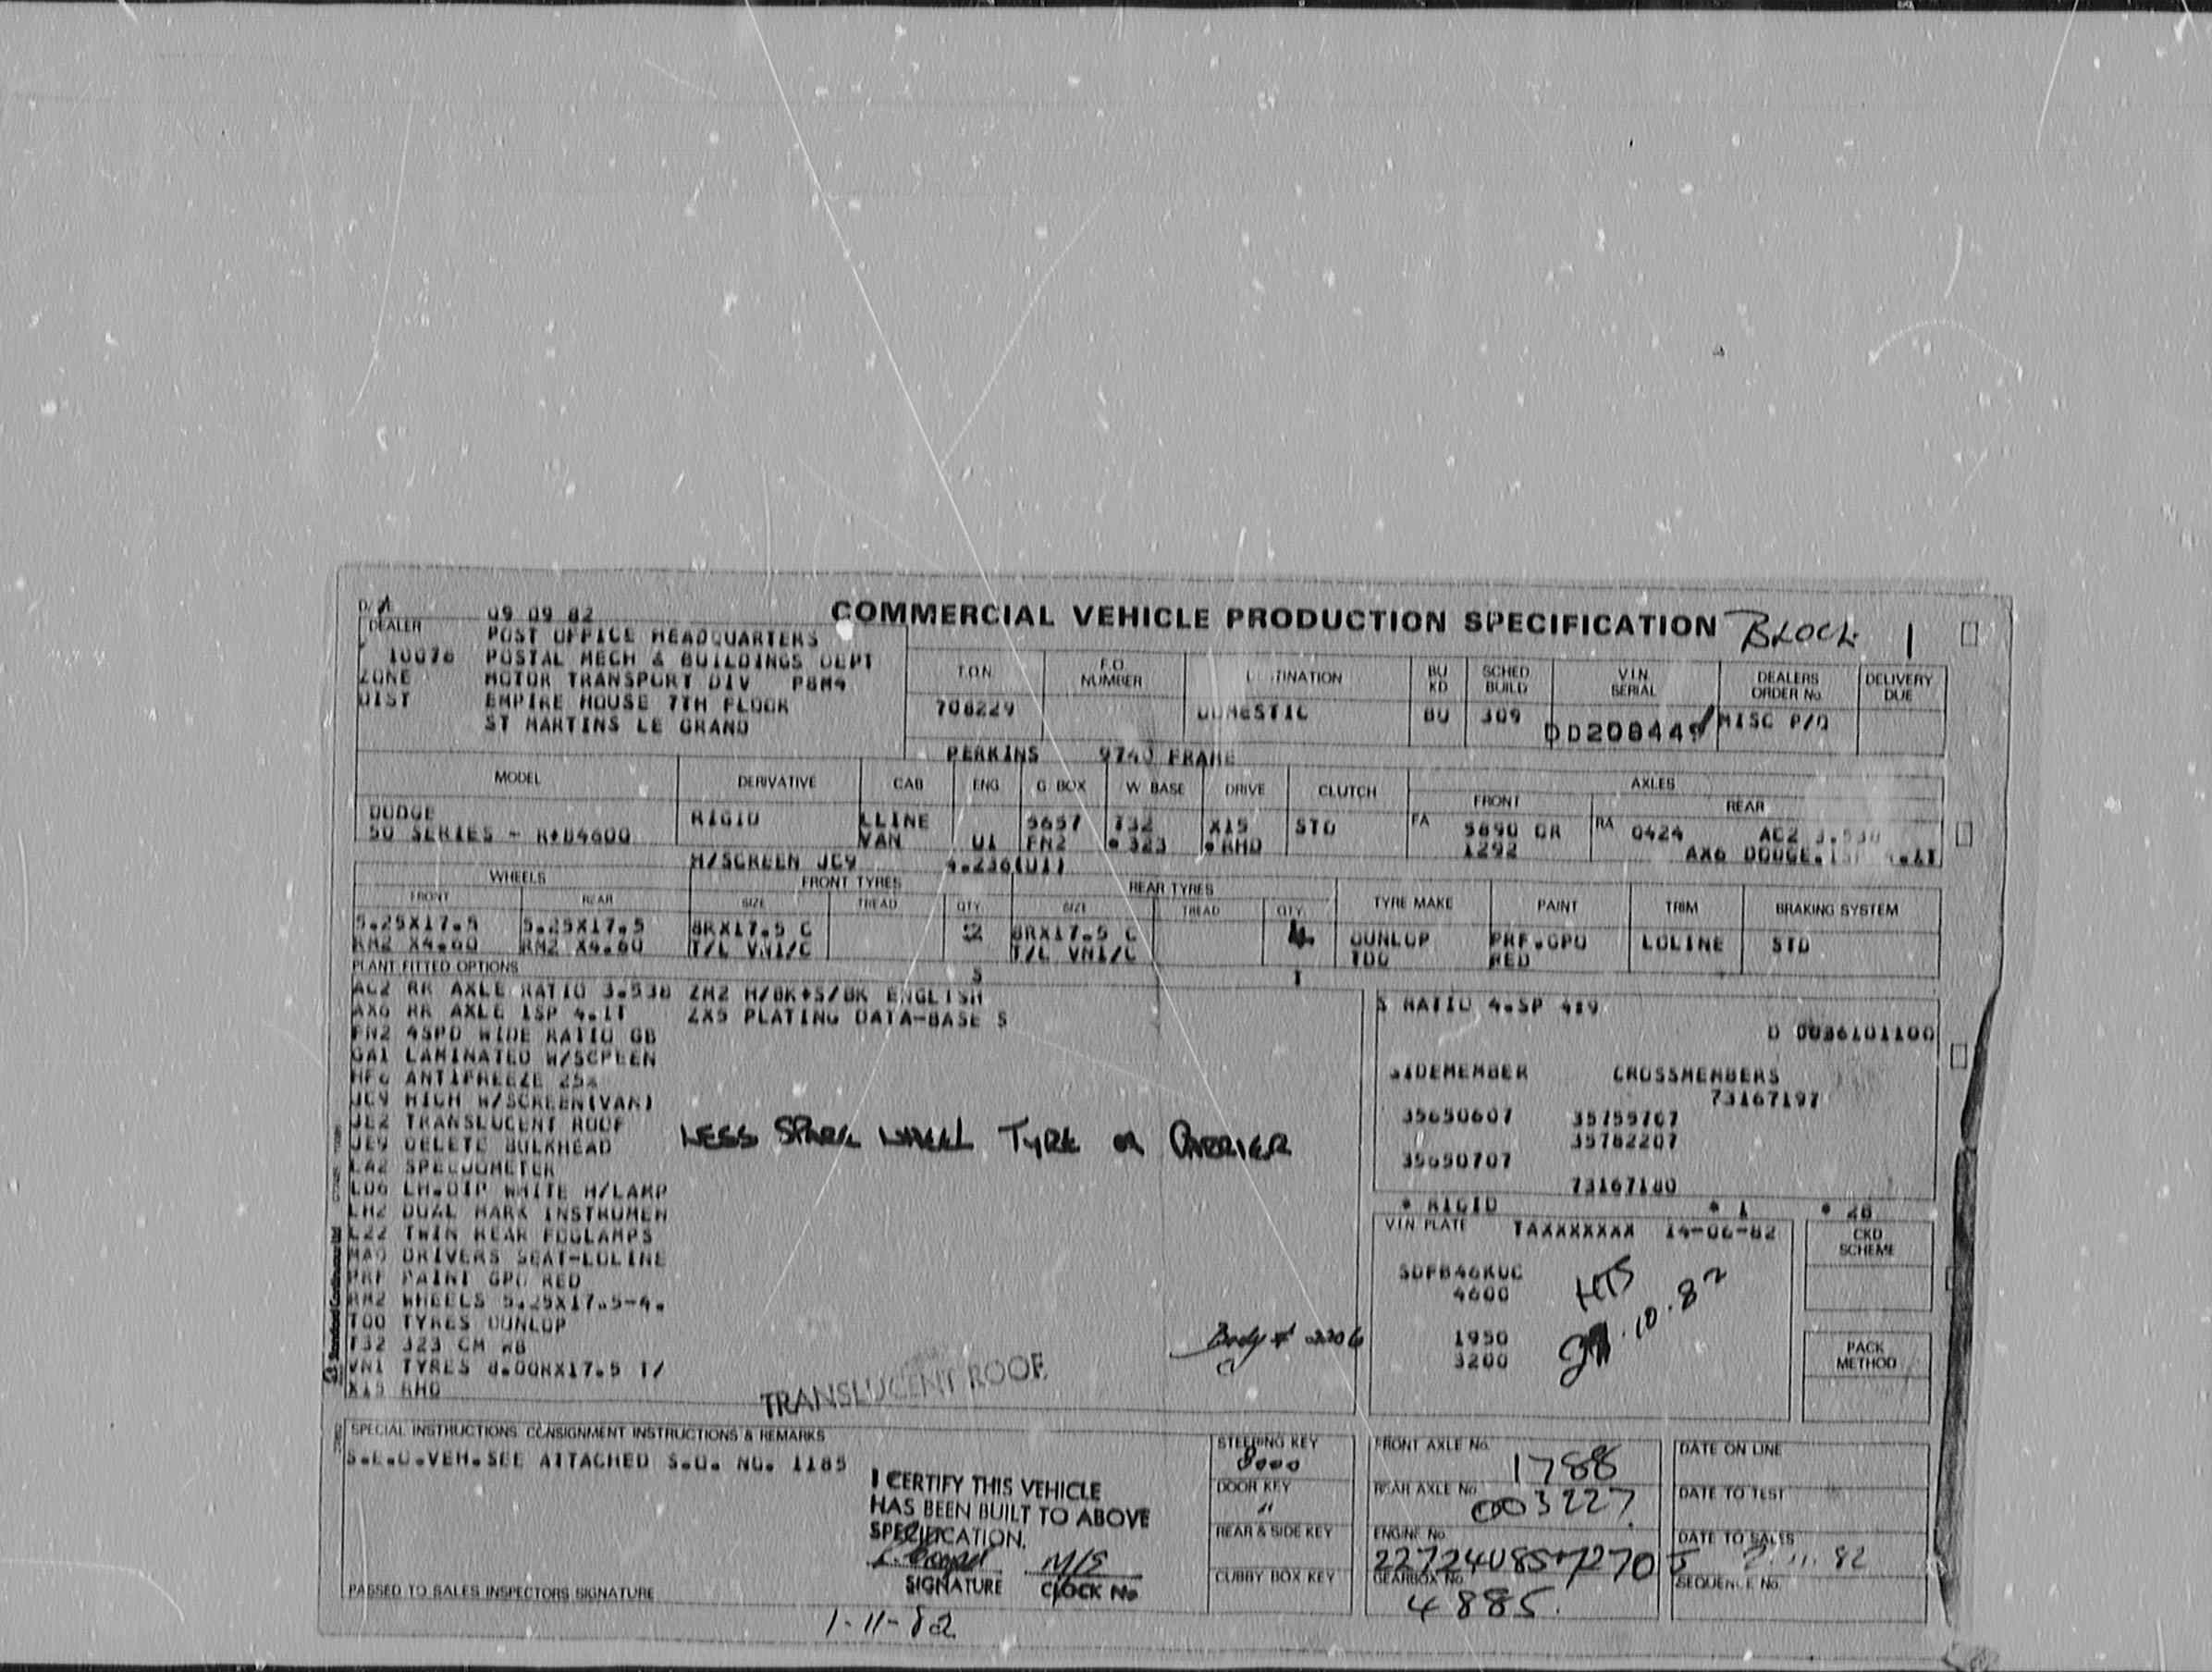 DATE 09 09 82
COMMERCIAL VEHICLE PRODUCTION SPECIFICATION BLOCK 1
DEALER POST OFFICE HEADQUARTERS
10078 POSTAL MECH & BUILDINGS DEPT
ZONE MOTOR TRANSPORT DIV P8M4
DIST EMPIRE HOUSE 7TH FLOOR
ST MARTINS LE GRAND
T.O.N. F.O. NUMBER DESTINATION BU KD SCHED BUILD V.I.N. SERIAL DEALERS ORDER No. DELIVERY DUE
708229 DOMESTIC BU 309 DD208449 MISC P/O
PERKINS 9740 FRAME
MODEL DERIVATIVE CAB ENG G BOX W BASE DRIVE CLUTCH AXLES
FRONT REAR
DODGE RIGID LLINE 9657 T32 X15 STD FA 5890 OR RA 0424 AC2 3.538
50 SERIES - R+D4600 VAN U1 FN2 • 323 • RHD 1292 AX6 DODGE.
H/SCREEN JC9 4.236(U1)
WHEELS FRONT TYRES REAR TYRES TYRE MAKE PAINT TRIM BRAKING SYSTEM
FRONT REAR SIZE TREAD QTY. SIZE TREAD QTY.
5.25X17.5 5.25X17.5 8RX17.5 C 2 8RX17.5 C 4 DUNLOP PRF.GPO LOLINE STD
RM2 X4.60 RM2 X4.60 T/L VN1/C T/L VN1/C TDO RED
PLANT FITTED OPTIONS
AC2 RR AXLE RATIO 3.538 ZM2 H/BK+S/BK ENGLISH
AX6 RR AXLE ISP 4.1T ZX5 PLATING DATA-BASE S
FN2 4SPD WIDE RATIO GB
GA1 LAMINATED W/SCREEN
HF6 ANTIFREEZE 25%
JC9 HIGH W/SCREEN(VAN)
JE2 TRANSLUCENT ROOF
JE9 DELETE BULKHEAD
LA2 SPEEDOMETER
LD6 LH.DIP WHITE H/LAMP
LH2 DUAL MARK INSTRUMEN
LZ2 TWIN REAR FOGLAMPS
MA0 DRIVERS SEAT-LOLINE
PRF PAINT GPO RED
RM2 WHEELS 5.25X17.5-4.
TDO TYRES DUNLOP
T32 323 CM WB
VN1 TYRES 8.00RX17.5 T/
X15 RHD
LESS SPARE WHEEL TYRE OR CARRIER
Body # 2206
TRANSLUCENT ROOF
S RATIO 4.SP 4+9
D 0036101100
SIDEMEMBER CROSSMEMBERS
73167197
35650607 35759767
35782207
35650707
73167180
• RIGID • 1 • 28
V.I.N PLATE TAXXXXXXX 14-06-82
CKD SCHEME
SDFB46KUC
4600
HTS
10.82
1950
3200
PACK METHOD
Standard Continuous Ltd
SPECIAL INSTRUCTIONS CONSIGNMENT INSTRUCTIONS & REMARKS
S.E.O.VEH.SEE ATTACHED S.O. NO. 1185
I CERTIFY THIS VEHICLE
HAS BEEN BUILT TO ABOVE
SPECIFICATION.
SIGNATURE CLOCK No
PASSED TO SALES INSPECTORS SIGNATURE
1-11-82
STEERING KEY
DOOR KEY
"
REAR & SIDE KEY
CUBBY BOX KEY
FRONT AXLE No.
1788
REAR AXLE No
003227.
ENGINE No.
GEARBOX No.
4885.
DATE ON LINE
DATE TO TEST
DATE TO SALES
2.11.82
SEQUENCE No.